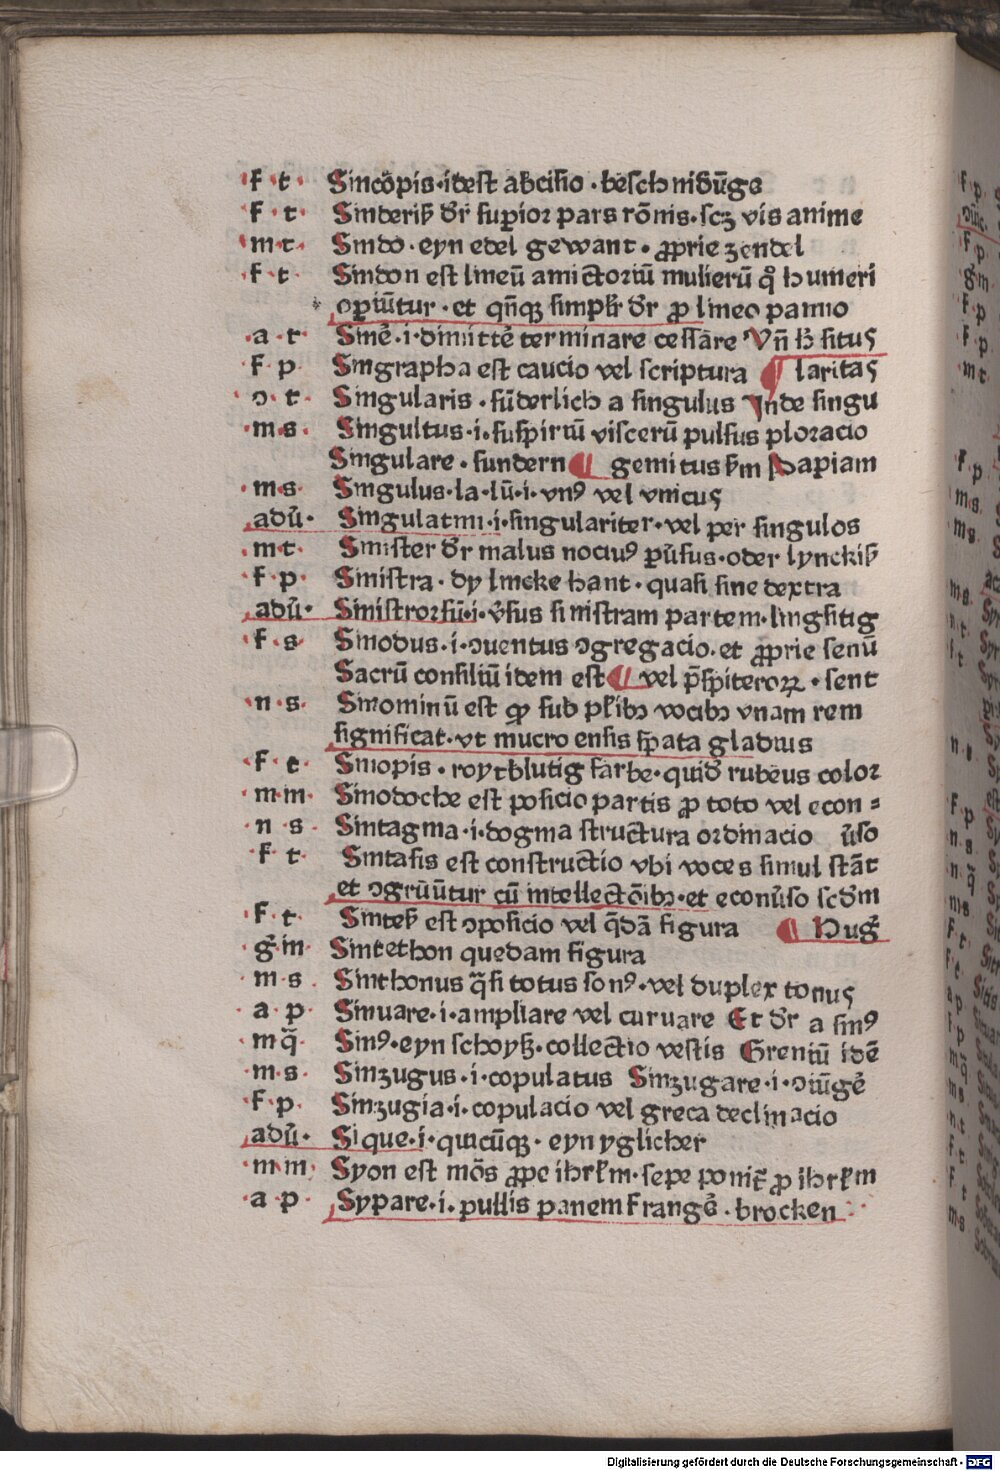 f t Sincōpis·idest abcisio·beschnidūge
f t Sinderiß dr̄ supior pars rōnis·scꝫ vis anime
m t Sindo·eyn edel gewant·ꝓprie zendel
f t Sindon est lineū amictoriū mulierū qͦ humeri
opiūtur·et qn̄qꝫ simplr̄ dr̄ ꝓ lineo panno
a t Sinē·i·dimittē terminare cessare Vn̄ hꝰ situs
f p Singrapha est caucio vel scriptura ¶ laritas
ɔ t Singularis·sūderlich a singulus Inde singu
m s Singultus·i·suspiriū viscerū pulsus ploracio
Singulare·sundern ¶ gemitus sm̄ Papiam
m s Singulus·la·lū·i·vnꝰ vel vnicus
adū Singulatim·i·singulariter·vel per singulos
m t Sinister dr̄ malus nociuꝰ pūsus·oder lynckiß
f p Sinistra·dy lincke hant·quasi sine dextra
adū Sinistrorsū·i·v̄sus sinistram partem·lingsitig
f s Sinodus·i·ɔuentus ɔgregacio·et ꝓprie senū
Sacrū consiliū idem est ¶ vel p̄spiteroꝝ·sent
n s Sinominū est qͦ sub plibꝫ vocibꝫ vnam rem
significat·vt mucro ensis spata gladius
f t Sinopis·roytblutig farbe·quid rubeus color
m m Sinodoche est posicio partis ꝓ toto vel econ=
n s Sintagma·i·dogma structura ordinacio ūso
f t Sintasis est constructio vbi voces simul stāt
et ɔgrūūtur cū intellectōibꝫ·et econūso scdm
f t Sinteß est ɔposicio vel q̄dā figura ¶ Huḡ
ḡ m Sintethon quedam figura
m s Sinthonus q̄si totus sonꝰ·vel duplex tonus
a p Sinuare·i·ampliare vel curuare Et dr̄ a sinꝰ
m q̄ Sinꝰ·eyn schoyß·collectio vestis Greniū idē
m s Sinzugus·i·copulatus Sinzugare·i·ɔiūgē
f p Sinzugia·i·copulacio vel greca declinacio
adū Sique·i·quicūqꝫ·eyn yglicher
m m Syon est mōs ꝓpe ihrlm·sepe ponit̄ ꝓ ihrlm
a p Sypare·i·pullis panem frangē·brocken
Digitalisierung gefördert durch die Deutsche Forschungsgemeinschaft - DFG